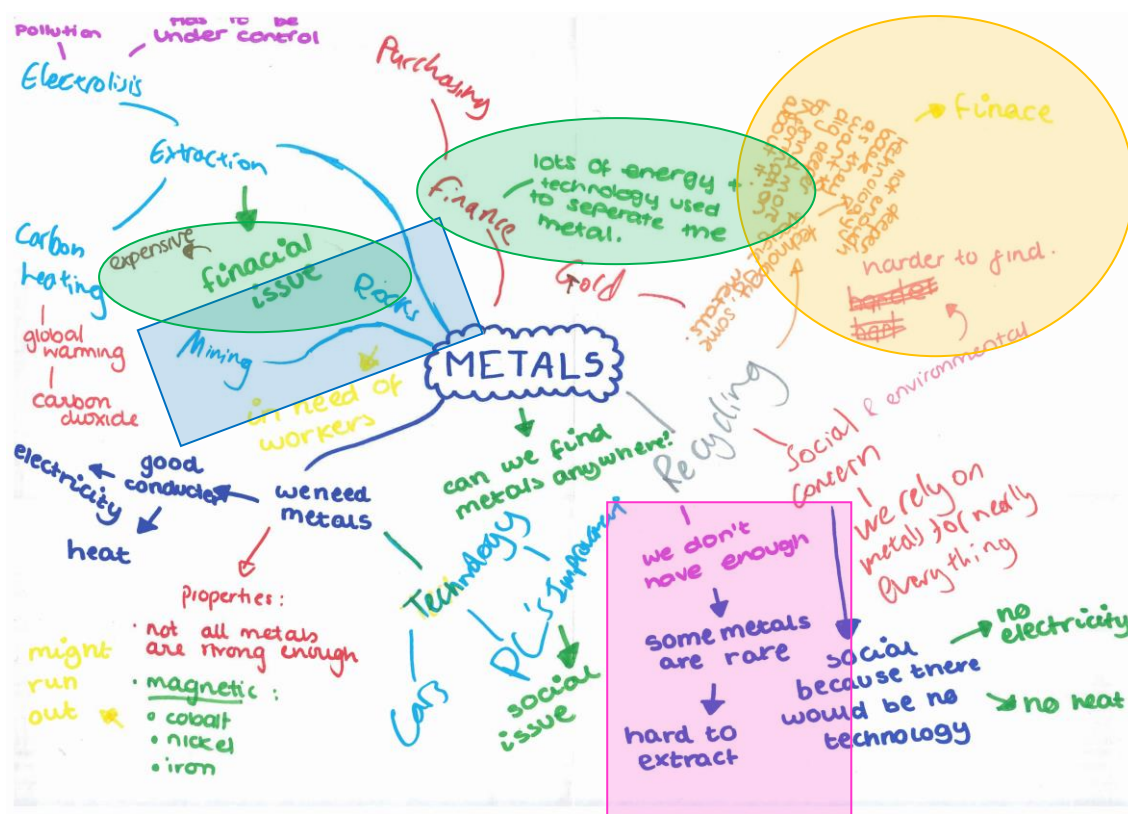 Pollution
Has to be
under control
Electrolisis
Extraction
Carbon
heating
global
warming
carbon
dioxide
expensive
finacial
issue
Rocks
Mining
in need of
workers
Purchasing
finance
lots of energy +
technology used
to seperate the
metal.
Gold
METALS
finace
harder to find.
harder
Recycling
Social
concern
& environmental
we rely on
metals for nearly
everything
can we find
metals anywhere?
good
conducter
electricity
heat
we need
metals
properties:
· not all metals
are strong enough
· magnetic:
• cobalt
• nickel
• iron
might
run
out
Technology
Cars
PC's
Improvement
social
issue
we don't
have enough
some metals
are rare
hard to
extract
social
because there
would be no
technology
no
electricity
no heat